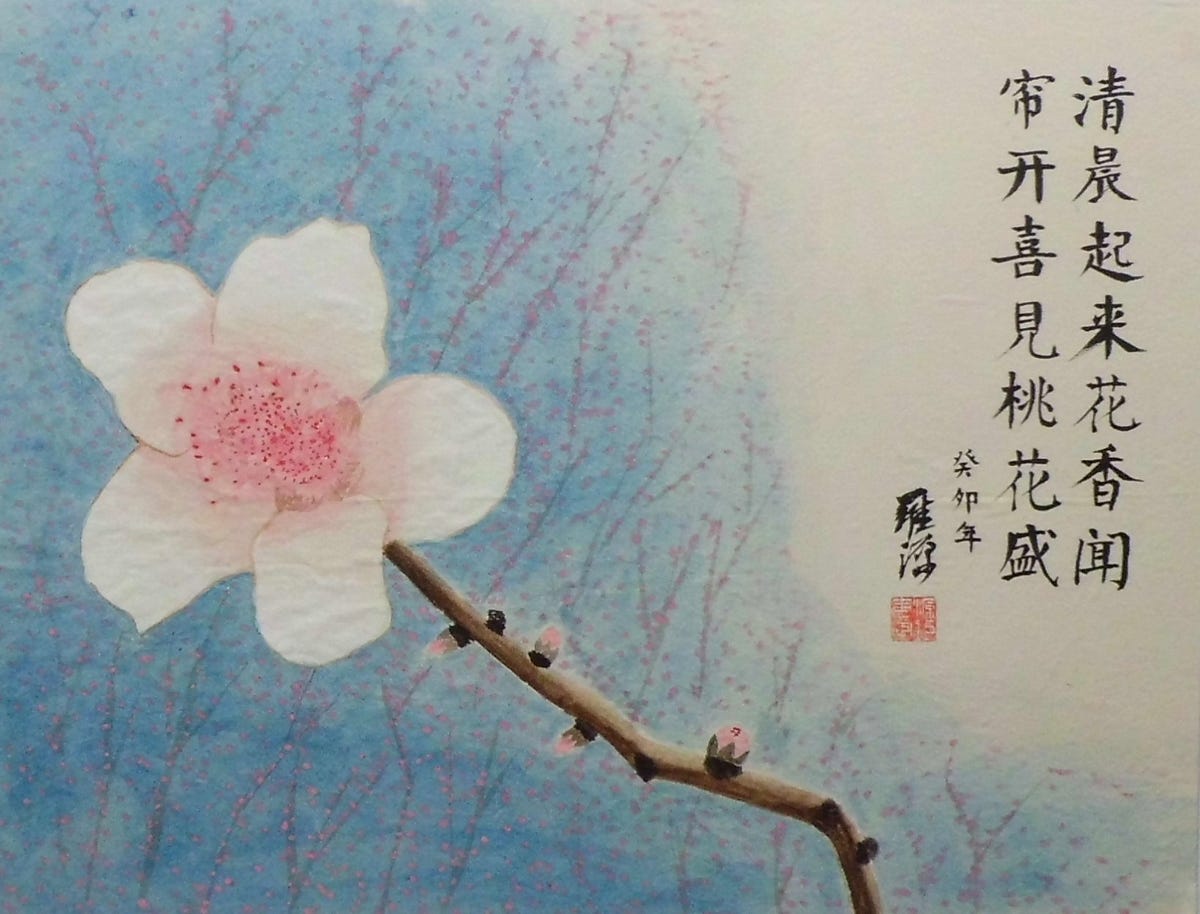 清晨起来花香闻
帘开喜見桃花盛
癸卯年
羅源